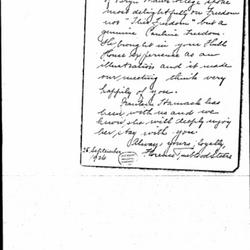 of Bryn Mawr College spoke
most delightfully on Freedom
not "This Freedom" but a
genuine Pauline Freedom.
She brought in your Hull
House experience as an
illustration and it made
our meeting think very
happily of you.
has
been with us and we
know she will deeply enjoy
her stay with you.
Always yours, loyally,
25 September
1926